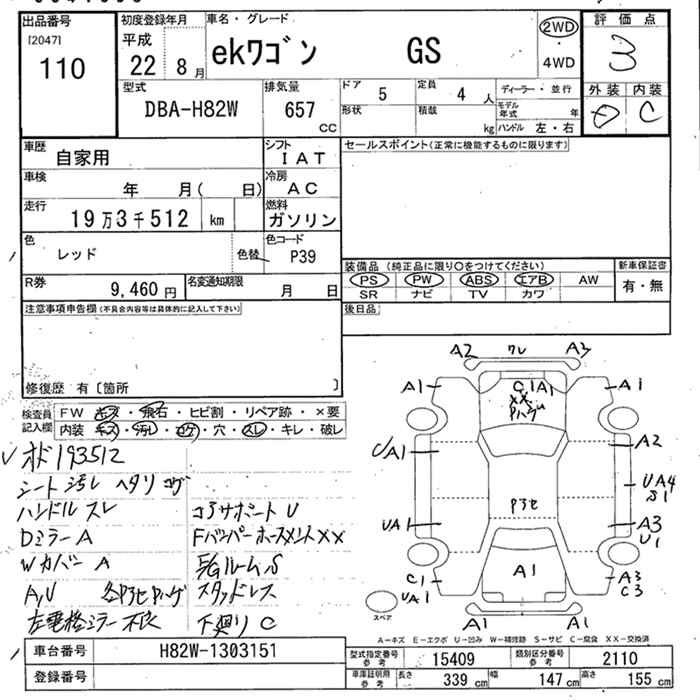 出品番号
[2047]
110
初度登録年月
平成
22年 8月
車名・グレード
ekワゴン GS
2WD
・
4WD
評価点
3
外装 内装
C
型式
DBA-H82W
排気量
657
CC
ドア
5
定員
4 人
ディーラー・並行
形状
積載
kg
モデル年式 年
ハンドル 左・右
車歴
自家用
シフト
IAT
車検
年 月( 日)
冷房
AC
走行
19万3千512 km
燃料
ガソリン
色
レッド
色替
色コード
P39
R券
9,460 円
名変通知期限
月 日
セールスポイント(正常に機能するものに限ります)
装備品 (純正品に限り〇をつけてください)
PS PW ABS エアB AW
SR ナビ TV カワ
新車保証書
有・無
後日品
注意事項申告欄(不具合内容等は具体的に記入して下さい)
修復歴 有〔箇所 〕
検査員
記入欄
FW キズ・飛石・ヒビ割・リペア跡・×要
内装 キズ・汚レ・コゲ・穴・スレ・キレ・破レ
193512
シート汚レ ヘタリ
ハンドルスレ
コアサポートU
DミラーA
Fバンパーホースメント××
WカバーA
A/U
スタッドレス
左電格ミラー不良
下廻りC
A2 ワレ A3
A1 C1 A1 A1
××
A1
A2
UA4
S1
UA1
A3
U1
C1
UA1
A1
A3
C3
A1 A1
スペア
A-キズ E-エクボ U-凹み W-補修跡 S-サビ C-腐食 XX-交換済
車台番号
H82W-1303151
登録番号
型式指定番号
参考
15409
類別区分番号
参考
2110
車庫証明用
参考
長さ
339 cm
幅
147 cm
高さ
155 cm